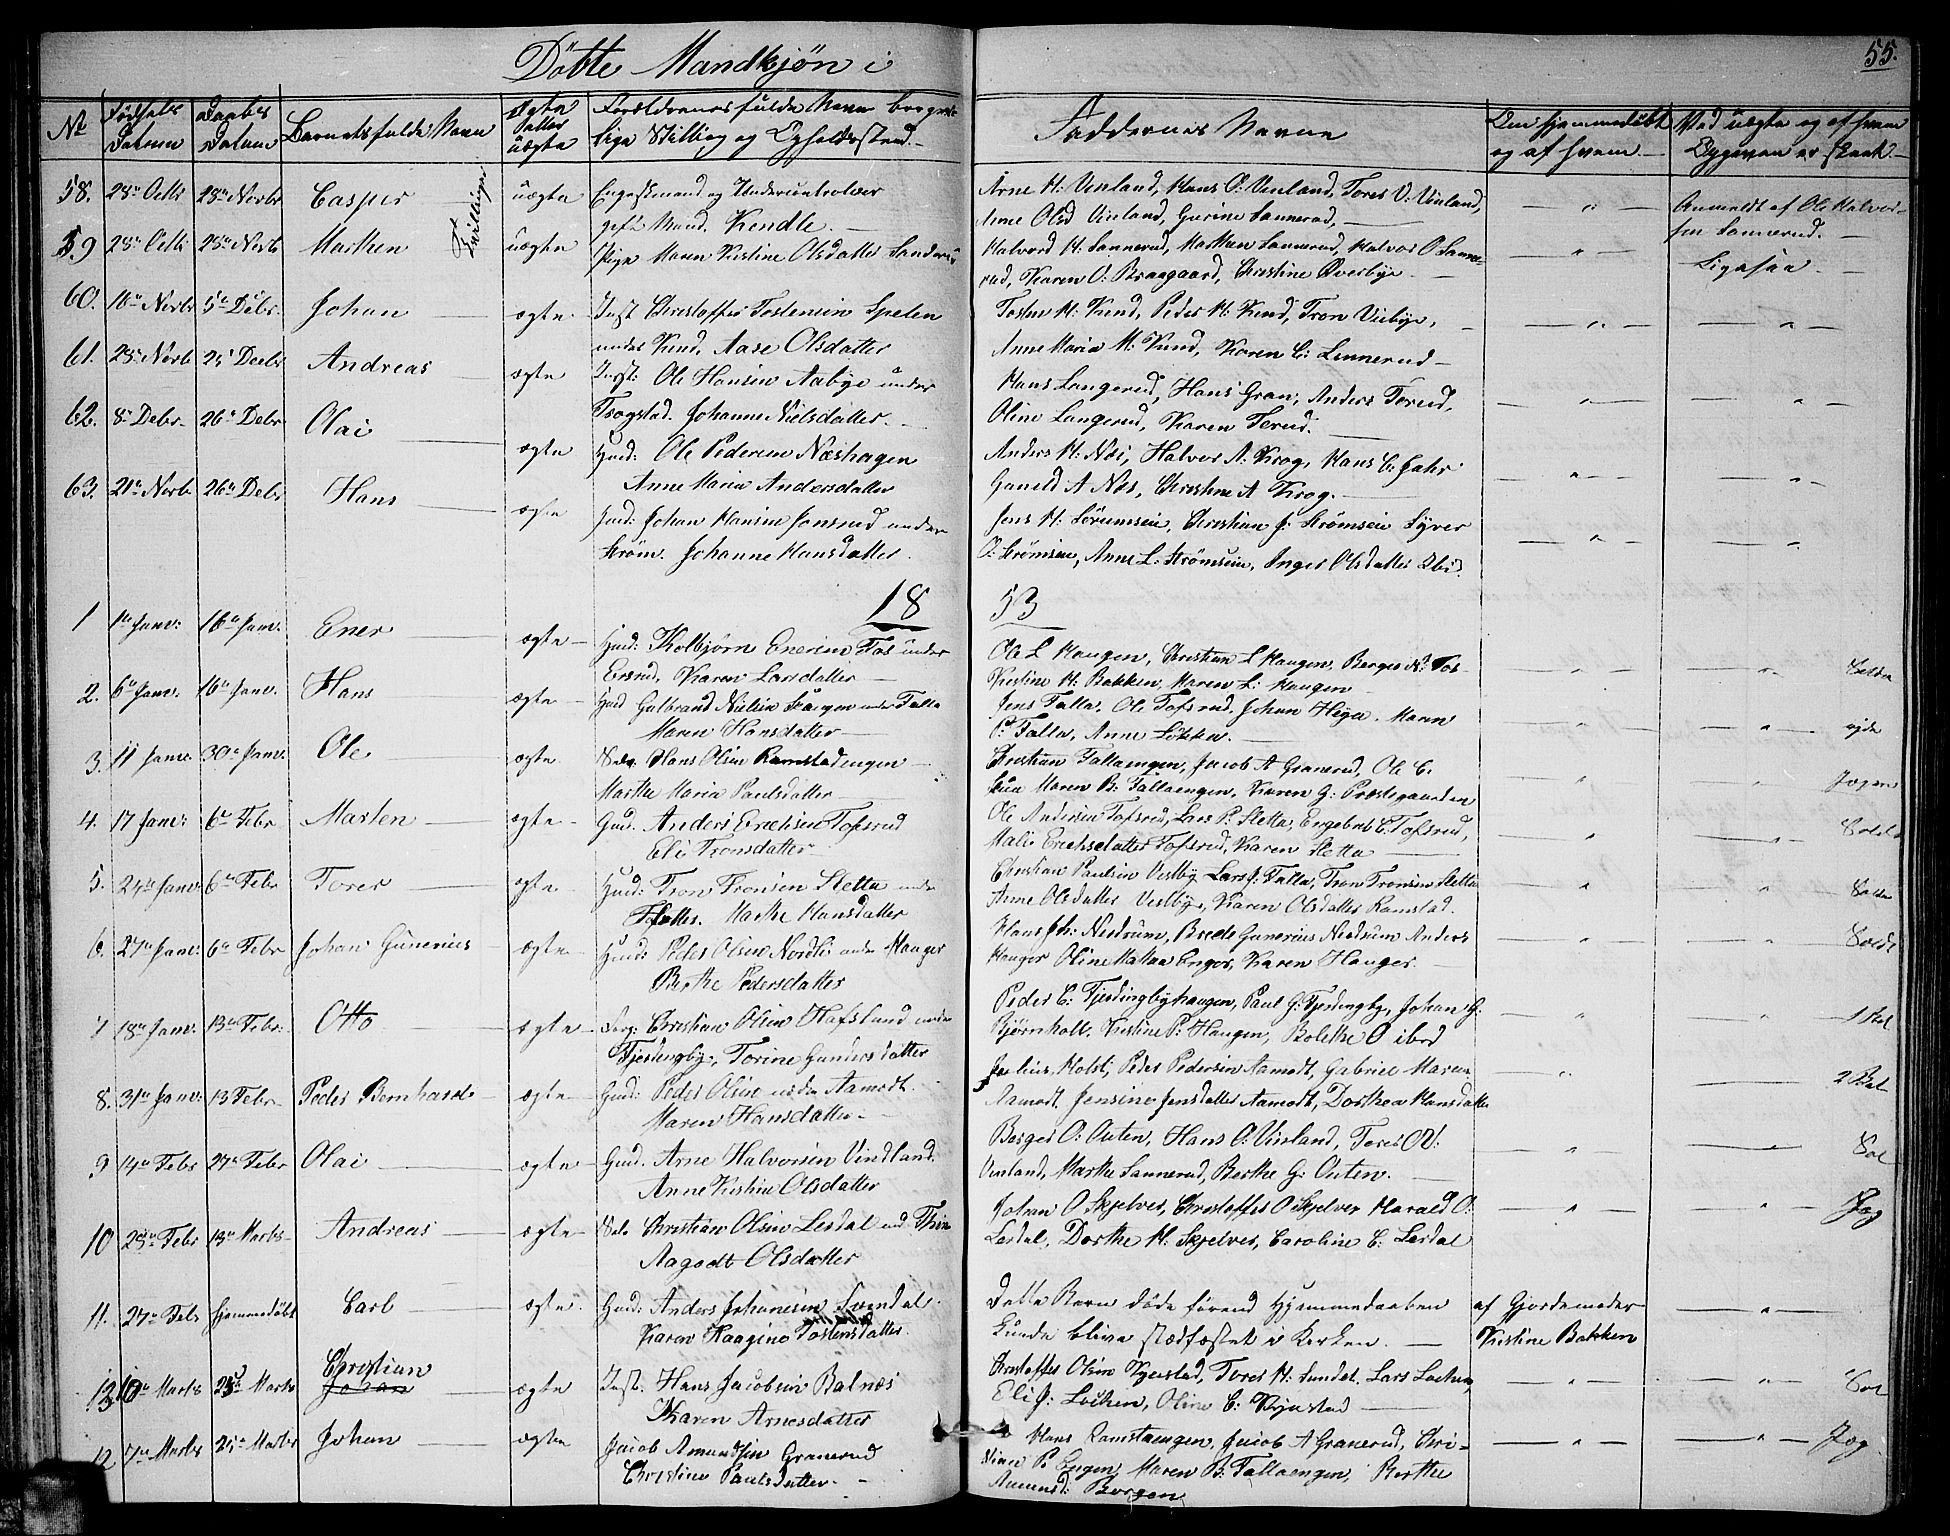 Döbte Mandkjøn i
55.
No Fødsels Datum Daabs Datum Barnets fulde Navn Ægte eller uægte Forældrenes fulde Navn borgerlige Stilling og Opholdssted.
Faddernes Navne
Om hjemmedøbt og af hvem
Ved uægte og af hvem Opgaven er skeet
58. 28de Octb 28de Novbr Casper Tvillinger uægte Ungeskmand og Underincholver
gift Mand. Kendle.
Arne H: Vinland, Hans O: Vinland, Tores O: Vinland,
Anne Olsd Vinland, Gurine Sannerud,
Anmeldt af Ole Halvorsen Sannerud.
59 28de Octb 28de Novb Marthen uægte Pige Maren Kristine Olsdatter Sanderud
Halvord H: Sannerud, Marthen Sannerud, Halvor O Sannerud, Karen O. Braagaard, Christine Øverbye
Ligesaa
60. 10de Novbr 5te Debr. Johan ægte Inst Christoffer Tostensen Spelen
under Kind, Aase Olsdatter
Tosten H: Kind, Peder H: Kind, Tron Viebye,
Anne Maria M: Kind, Karen C: Linnerud
61. 28de Novb 25 Decbr Andreas ægte Inst: Ole Hansen Aabye under
Trogstad. Johanne Nielsdatter.
Hans Langerud, Hans Gran, Anders Torud,
Oline Langerud, Karen Terud.
62. 8de Debr 26de Debr Olai ægte Huusd: Ole Pedersen Næshagen
Anne Maria Andersdatter
Anders H: Næs, Halvor A: Krog, Hans C: Jahr
Gunild A Næs, Christine A Krog.
63. 21de Novbr 26de Debr Hans ægte Huusd: Johan Hansen Jonsrud under
Strøm. Johanne Hansdatter.
Jens H: Sørumsein, Christian J: Strømsein Syver
O: Strømsein, Anne L: Strømsein, Inger Olsdatter Ibid.
1853
1 1de Janv: 16de Janv. Ener ægte Huusd: Kolbjørn Enersen Fos under
Ersrud, Karen Larsdatter
Ole L Haugen, Christian L Haugen, Borger N: Fos
Kristine H: Bakken, Maren L: Haugen
2. 6de Janv. 16de Janv. Hans ægte Huusd Gulbrand Nielsen Haugen under Falla
Maren Hansdatter
Jens Falla, Ole Tofsrud, Johan Heyer, Maren
P: Falla, Anne Løkken.
3. 11 Janv. 30de Janv. Ole ægte Selv. Hans Olsen Ramstadengen
Marthe Maria Paulsdatter
Christian Fallaengen, Jacob A Granerud, Ole C.
Maren B: Fallaengen, Karen G: Præstegaarden
4. 17 Janv: 6te Febr Marten ægte Gaard. Anders Erichsen Tofsrud
Eli Tronsdatter
Ole Andersen Tofsrud, Lars P. Sletta, Engebret C: Tofsrud,
Mali Erichsdatter Tofsrud, Karen Sletta
5. 24de Janv: 6te Febr Torer ægte Huusd: Tron Tronsen Sletta under
Marthe Hansdatter
Christian Paulsen Vestby, Lars J: Falla, Tron Tronsen Sletta
Anne Olsdatter Vestby, Karen Olsdatter Ramstad.
6. 27de Janv: 6te Febr Johan Gunerius ægte Huusd: Peder Olsen Nordli under Hauger
Berthe Pedersdatter
Hans Joh: Nedrum, Brede Gunerius Nedrum Anders
Hauger Oline Mathea Enger, Karen Hauger.
7 18de Janv. 13de Febr: Otto ægte Christian Olsen Hafslund under
Fjerdingby, Torine Gundersdatter
Peder C: Fjerdingbyhaugen, Paul G: Fjerdingby, Johan G:
Bjørnholt, Kristine P: Haugen, Bolethe O ibid
8. 31te Janv: 13 Febr Peder Bernhard ægte Gaard: Peder Olsen nedre Aamodt.
Maren Hansdatter
Julius Holst, Peder Pedersen Aamodt, Gabriel Maren
Aamodt, Jensine Jensdatter Aamodt, Dorthea Hansdatter
9 14de Febr 27de Febr Olai ægte Gaard. Arne Halvorsen Vindland.
Anne Kristine Olsdatter
Borger O: Outen, Hans O: Vinland, Tores O:
Vinland, Marthe Sannerud, Berthe G: Outen.
10 28de Febr 13de Marts Andreas ægte Christian Olsen Lerdal
Aagodt Olsdatter
Johan O Skjelver, Christoffer O Skjelver Harald O:
Lerdal, Dorthe H: Skjelver, Caroline C: Lerdal
11. 27de Febr hjemmedøbt Carl ægte Gaard: Anders Johanesen Svendal
Karen Haagine Tostensdatter.
Dette Barn døde førend Hjemmedaaben
kunde blive stadfæstet i Kirken.
af Gjordemoder
Kristine Bakken
13 10de Marts 25de Marts Christian
Johan ægte Inst. Hans Jacobsen Balnes
Karen Arnesdatter
Christoffer Olsen Kjerstad, Torer H. Sundet, Lars Lochen,
Eli J: Lochen, Oline C: Kjerstad
12 7de Marts 25de Marts Johan ægte Jacob Amundsen Granerud
Christine Paulsdatter.
Hans Ramstaengen, Jacob A Granerud, Christian P. Engen, Maren B: Fallaengen, Berthe
Amund: Borgen